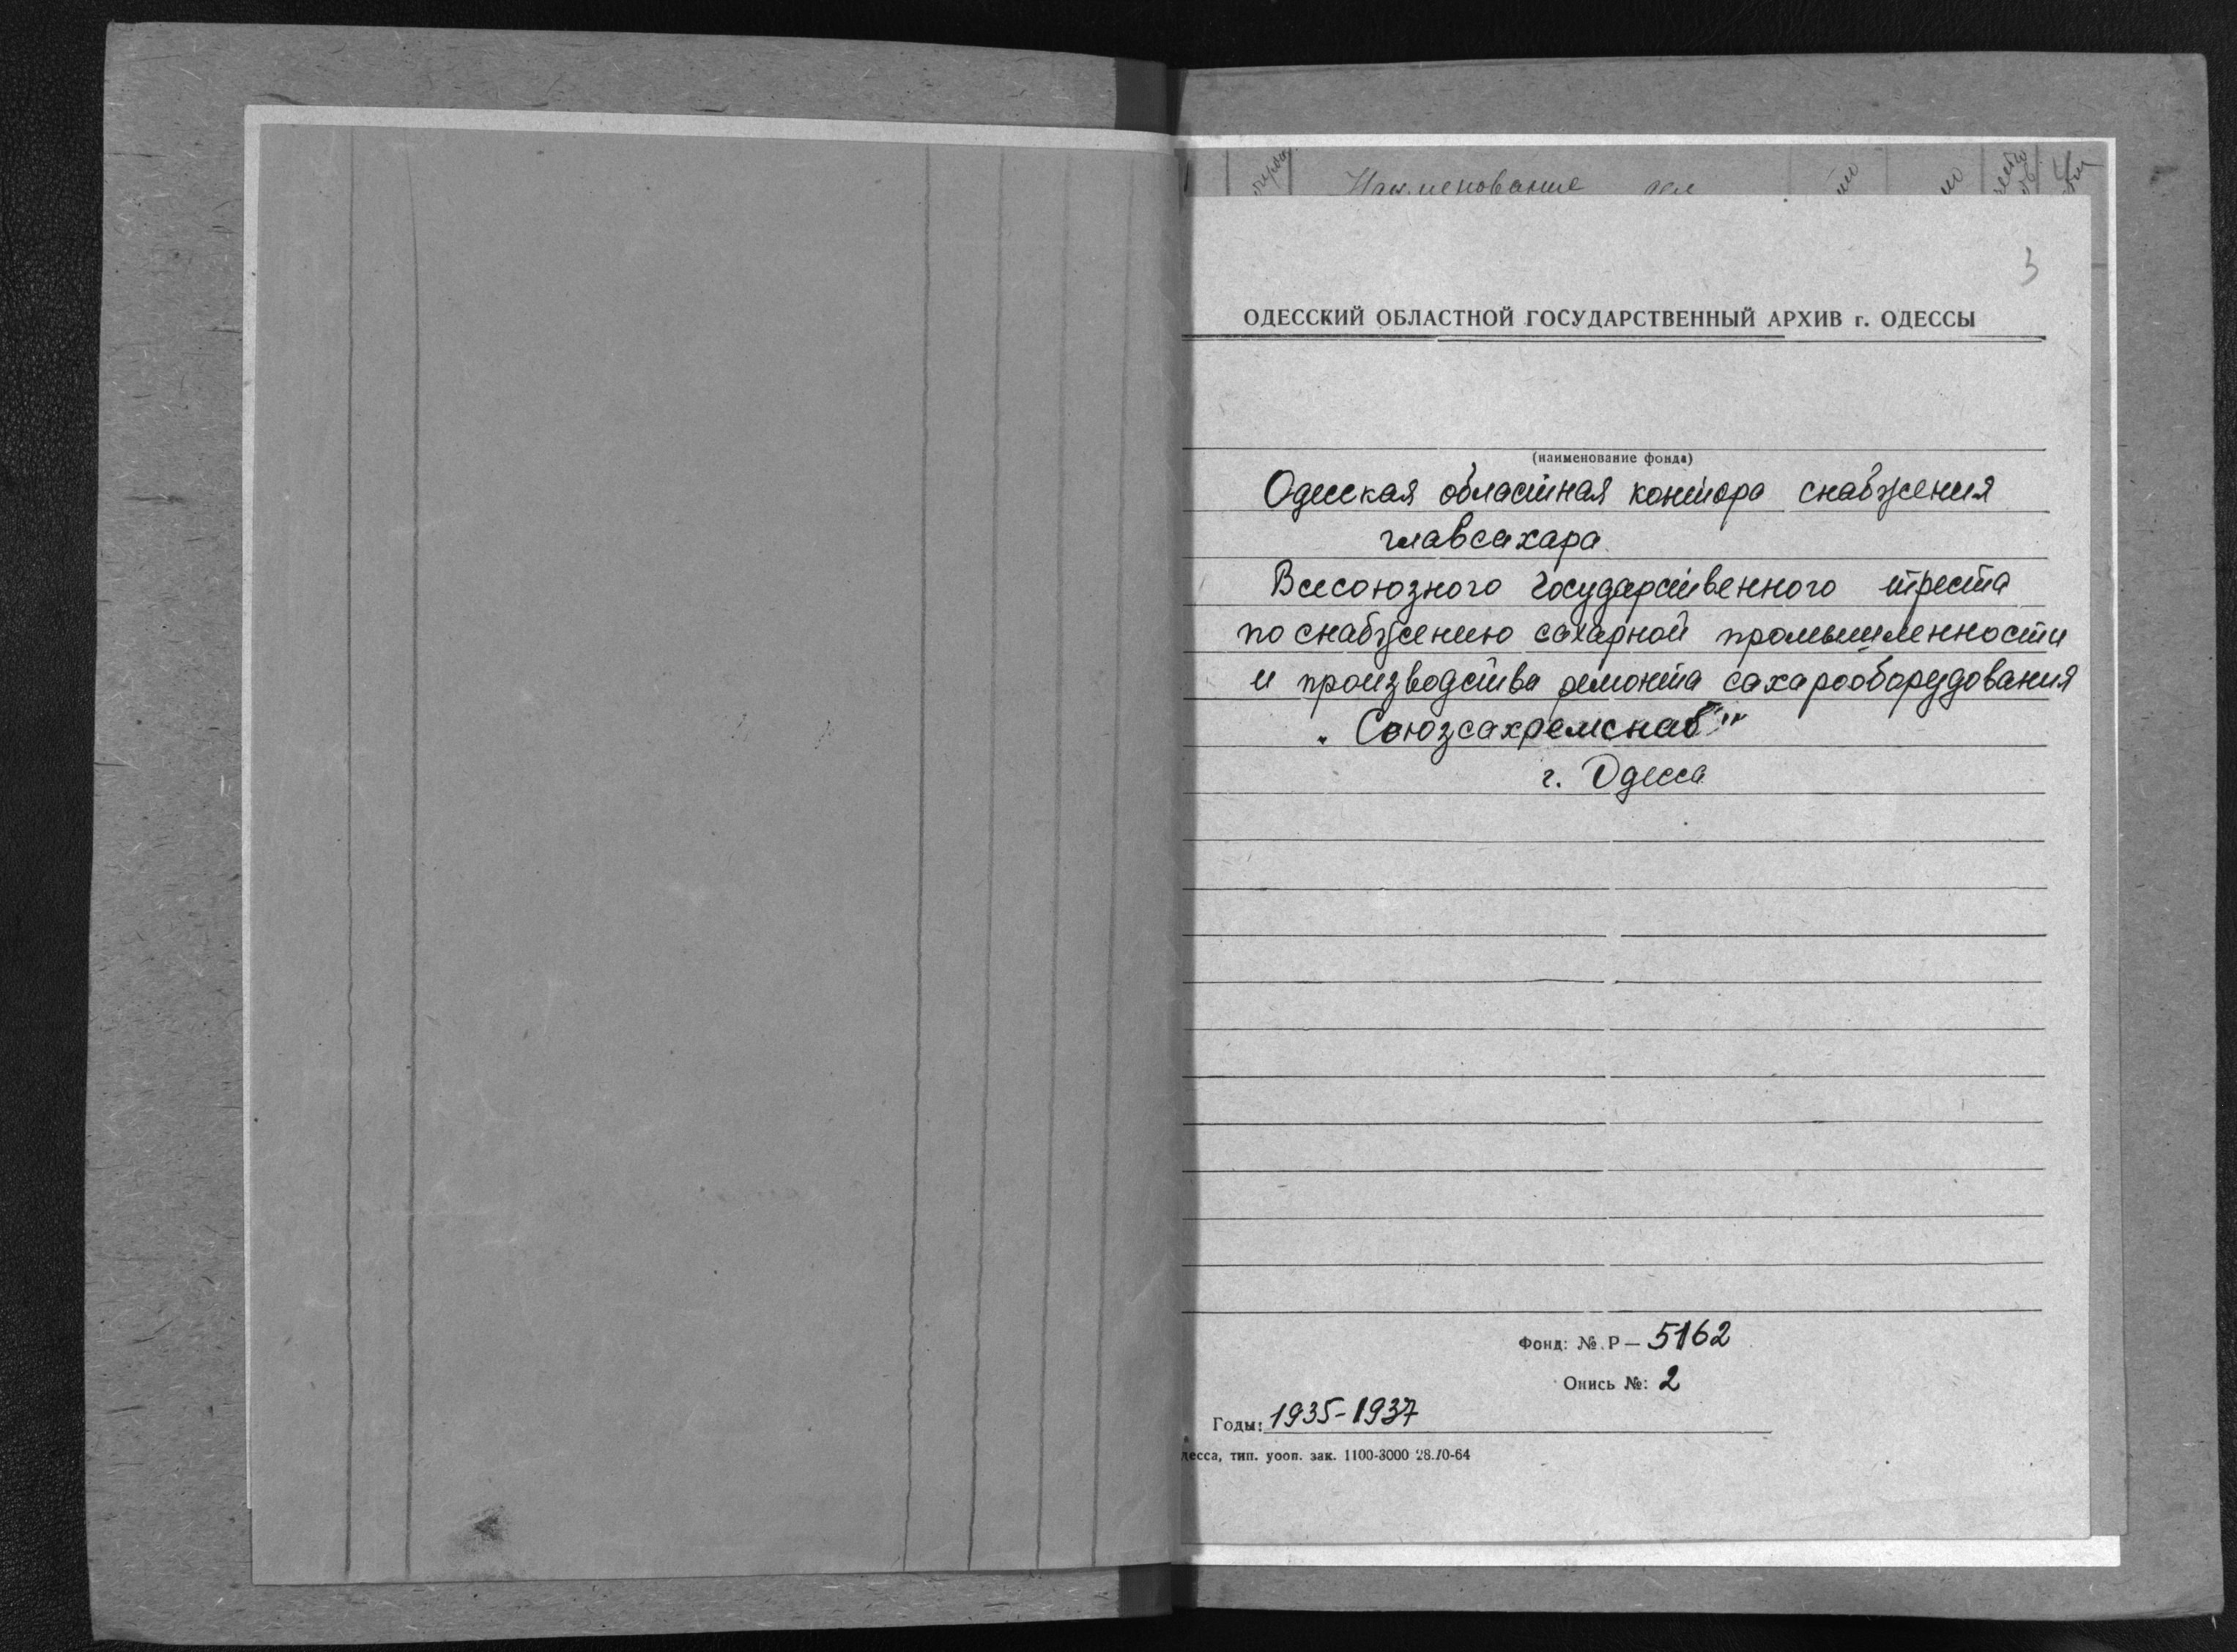 Наименование дел
3
ОДЕССКИЙ ОБЛАСТНОЙ ГОСУДАРСТВЕННЫЙ АРХИВ г. ОДЕССЫ
(наименование фонда)
Одесская областная контора снабжения
главсахара
Всесоюзного государственного треста
по снабжению сахарной промышленности
и производства ремонта сахарооборудования
„Союзсахремснаб"
г. Одесса
Фонд: № Р — 5162
Опись №: 2
Годы: 1935-1937
десса, тип. уооп. зак. 1100-3000 28.10-64